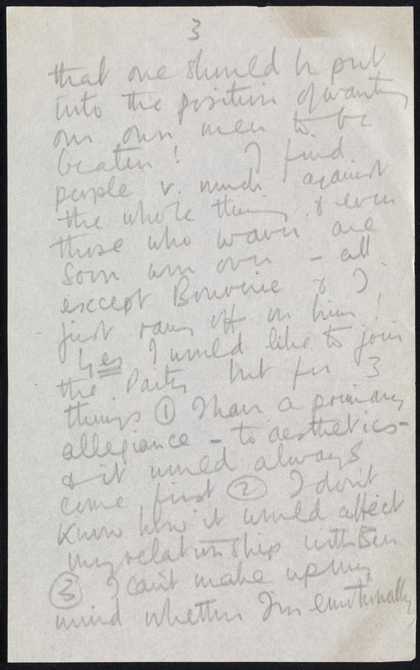 3
that one should be put
into the position of wanting
our own men to be
beaten! I find
people v. much against
the whole thing & even
those who waver are
soon won over - all
except Bouverie & I
just rang off on him!
Yes I would like to join
the Party but for 3
things ① I have a primary
allegiance - to aesthetics -
& it would always
come first ② I don't
know how it would affect
my relationship with Ben
③ I can't make up my
mind whether I'm emotionally